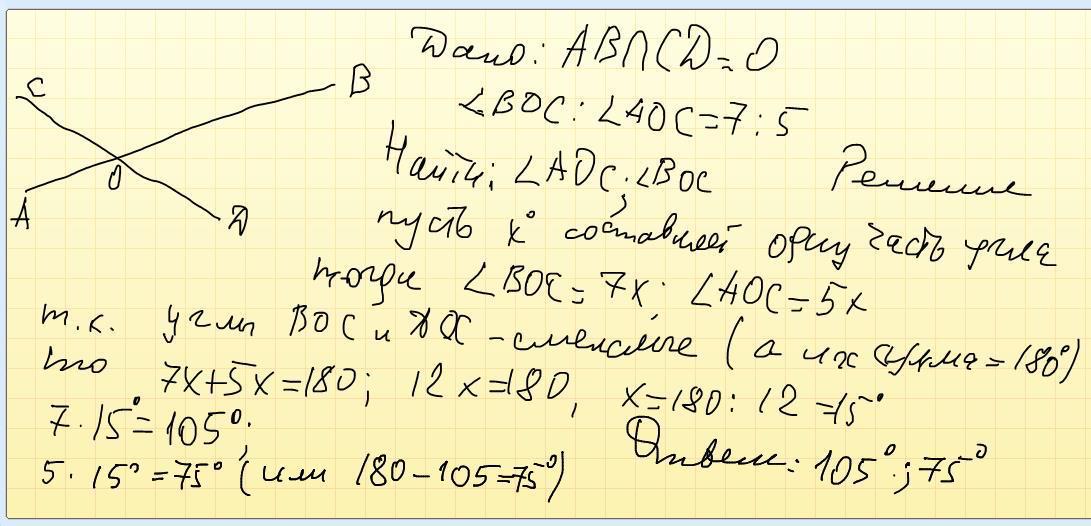 C
B
O
A
D
Дано: AB∩CD=O
∠BOC:∠AOC=7:5
Найти: ∠AOC; ∠BOC
Решение
пусть x° составляет одну часть угла
тогда ∠BOC=7x; ∠AOC=5x
т.к. углы BOC и AOC -смежные (а их сумма=180°)
то 7x+5x=180; 12x=180, x=180:12=15°
7·15°=105°;
5·15°=75° (или 180-105=75°)
Ответ: 105°; 75°